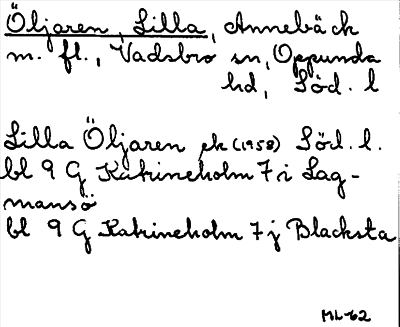 Öljaren, Lilla, Annebäck
m. fl., Vadsbro sn, Oppunda
hd, Söd. l
Lilla Öljaren ek (1958) Söd. l.
bl 9 G Katrineholm 7 i Lag-
mansö
bl 9 G Katrineholm 7 j Blacksta
ML-62